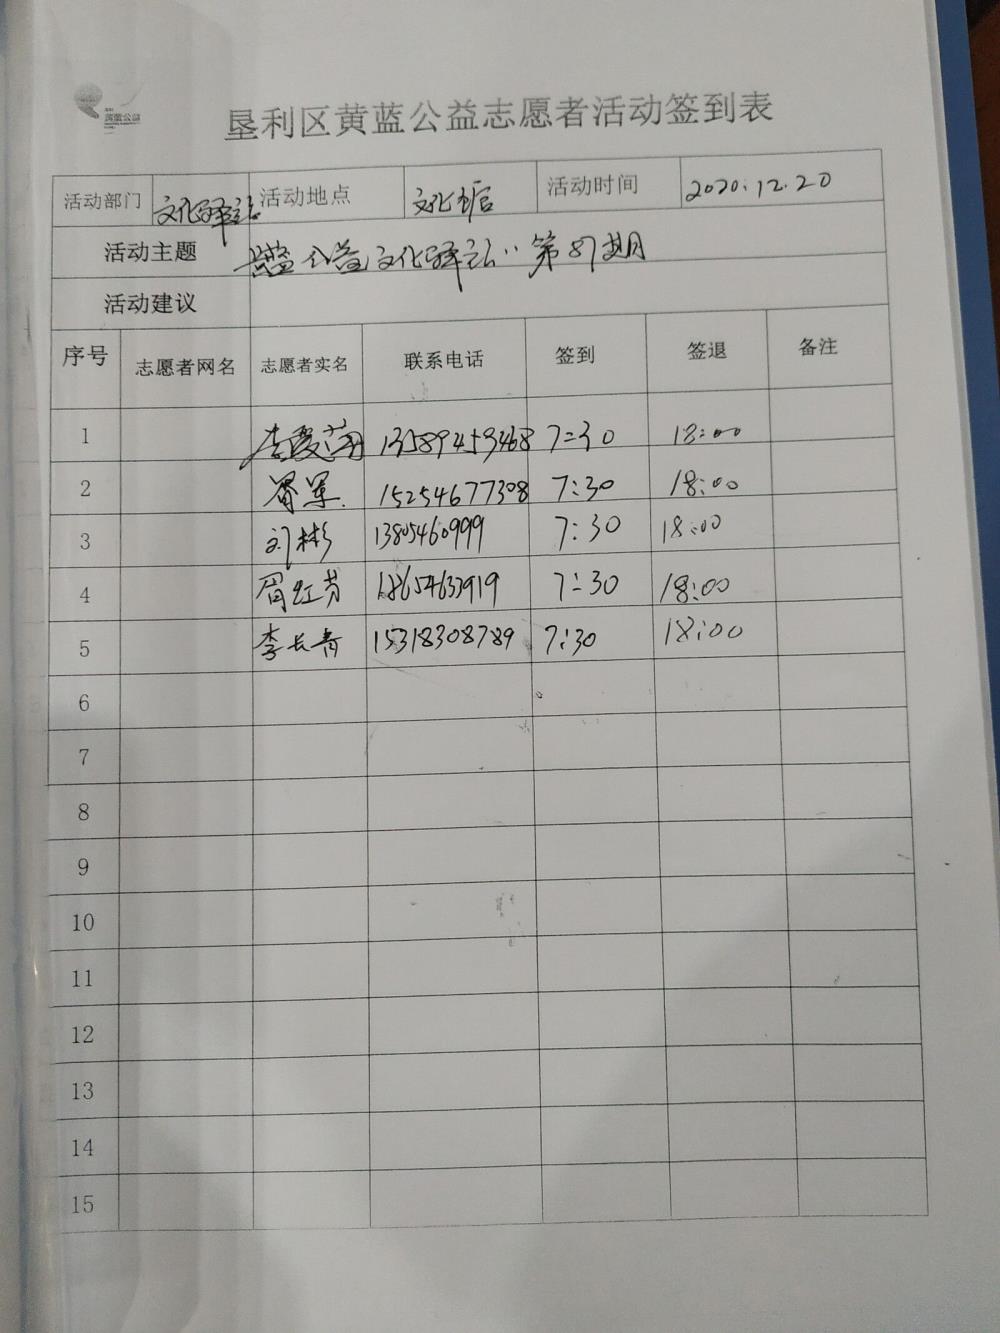 黄蓝公益
垦利区黄蓝公益志愿者活动签到表
活动部门 文化驿站 活动地点 活动时间 2020.12.20
活动主题 黄蓝公益文化驿站 第87期
活动建议
序号 志愿者网名 志愿者实名 联系电话 签到 签退 备注
1 13589459468 7:30 18:00
2 15254677308 7:30 18:00
3 刘彬 13805460999 7:30 18:00
4 周红芳 18654633919 7:30 18:00
5 李长青 15318308789 7:30 18:00
6
7
8
9
10
11
12
13
14
15